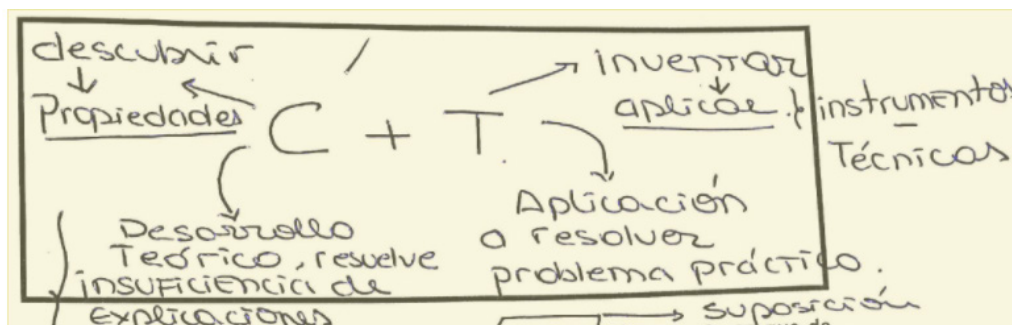 descubrir
Propiedades
C + T
inventar
aplicar } instrumentos
Técnicas
Desarrollo
Teórico, resuelve
insuficiencia de
explicaciones
Aplicación
o resolver
problema práctico.
suposición